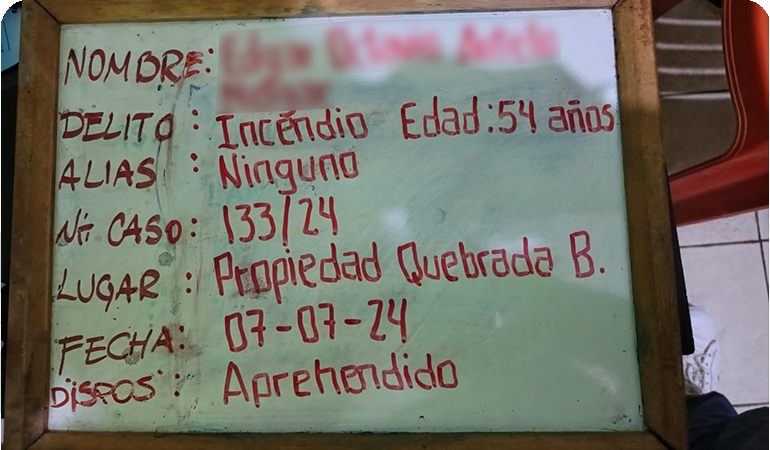 NOMBRE:
DELITO: Incéndio Edad: 54 años
ALIAS: Ninguno
Nº CASO: 133/24
LUGAR: Propiedad Quebrada B.
FECHA: 07-07-24
DISPOS: Aprehendido